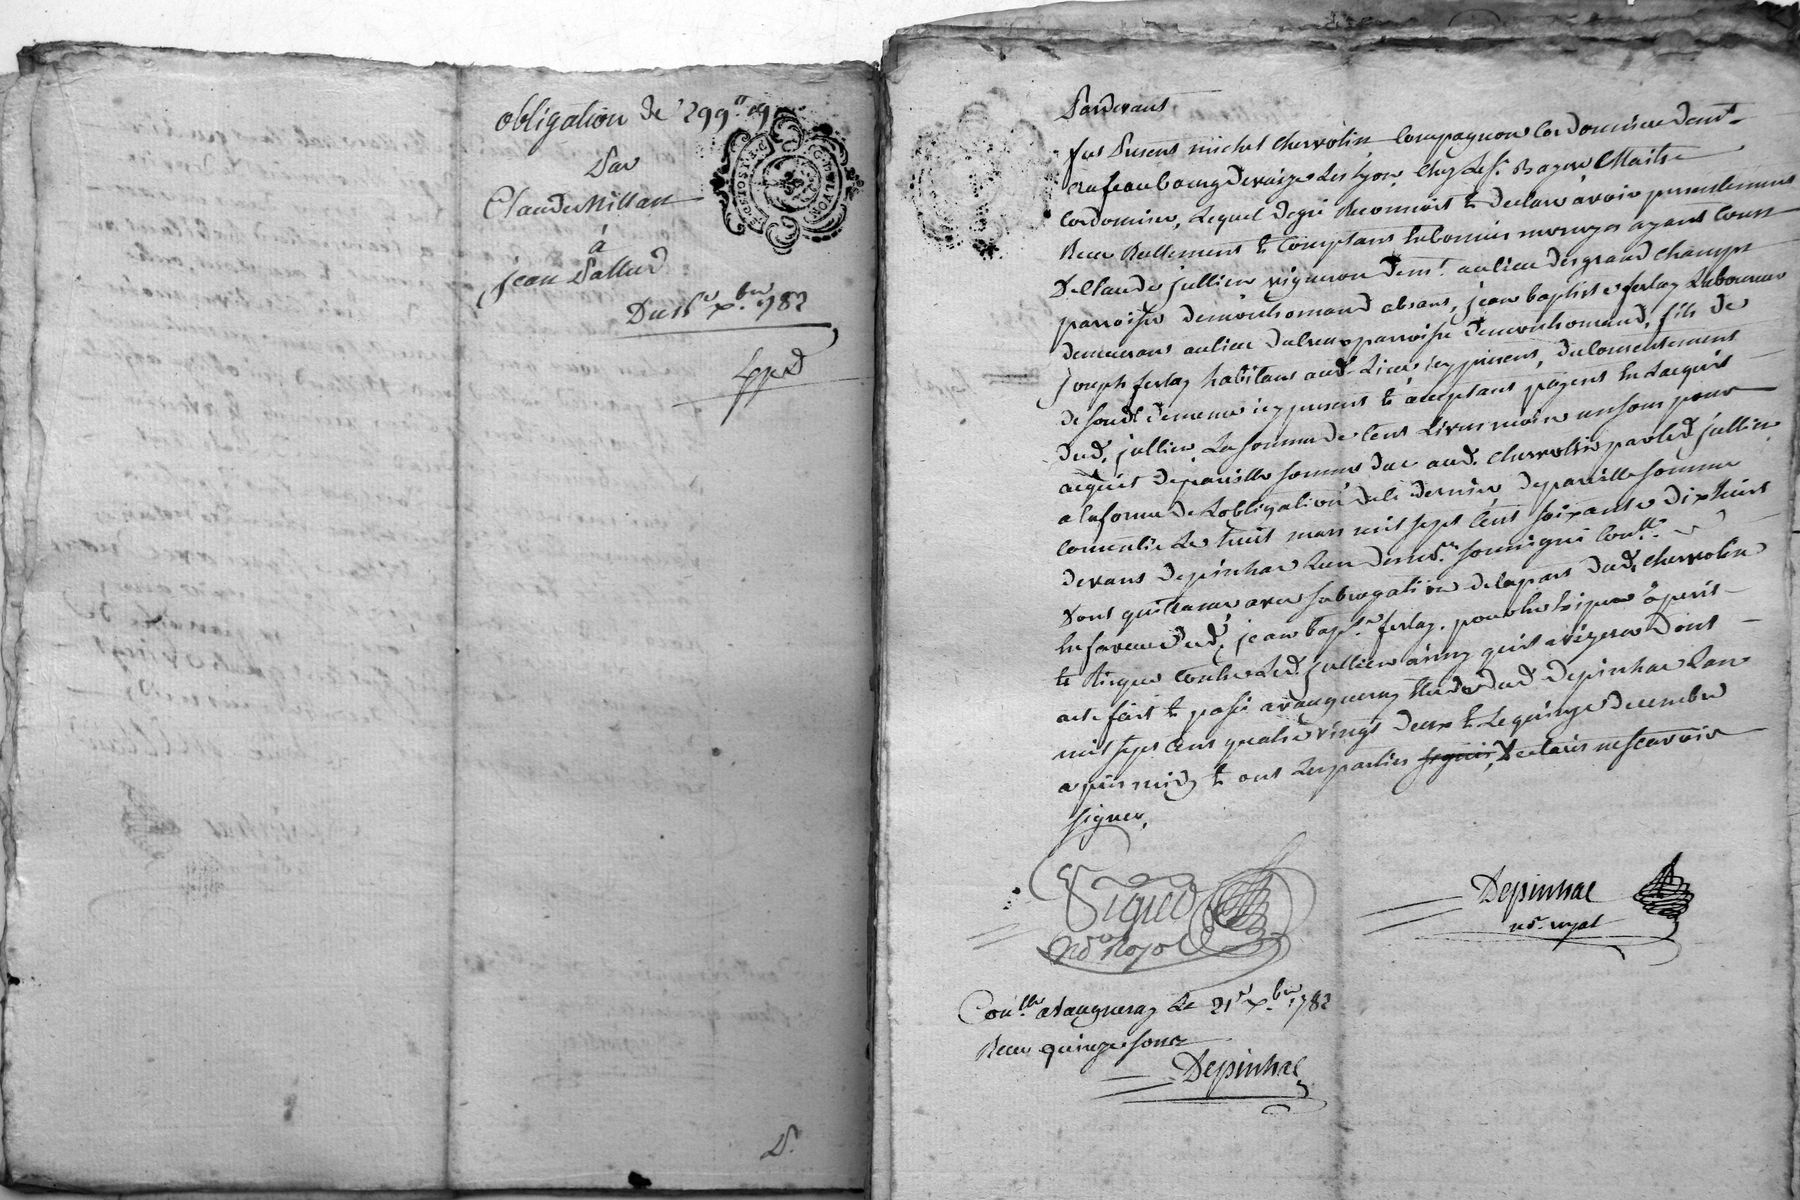 obligation de 299 ᵗᵗ 9
Par
Claude Millan
à
jean Pallud
Du 15 Xbre 1782
Expd
GNT LYON
P. 1 SOLS
D.
Pardevant
fut present michel chervolin Compagnon Cordonnier demt
au feaubourg de vaize Les Lyon, chez Le Sr. Maitre
Cordonnier, Lequel degré Reconnoit & declare avoir presentement
Receu Reellement & Comptant En bonnes monoyes ayant Cours
De Claude jullien vigneron demt. au lieu des grand champs
parroisse de montromand absent, jean baptiste ferlay Laboureur
demeurant au lieu parroisse de montromand, fils de
joseph ferlay habitant aud. Lieu icy present, du Consentement
de sond. icy present & acceptant payent En L'acquit
dud. jullien, La somme de Cent Livres moins un sous pour
acquit de pareille somme due aud. chervolin par led. jullien,
a la forme de L'obligation de pareille somme
Le huit mars mil sept Cent soixante dix huit
devant depinhac L'un des nres. soussigné Conllé.
Dont quittance avec subrogation de la part dud. chervolin
En faveur dud. jean bapte. ferlay. pour En exiger à peril
& risque Contre Led. jullien ainsy qu'il avizera Dont
acte fait & passé a vaugneray Etude dud. Depinhac L'an
mil sept Cent quatre vingt deux & Le quinze decembre
apres midy & ont Les parties signé, declaré ne scavoir
signer,
Nre Royal
Depinhac
nre. royal
Conllé a vaugneray Le 21e Xbre 1782
Receu quinze sous
Depinhac